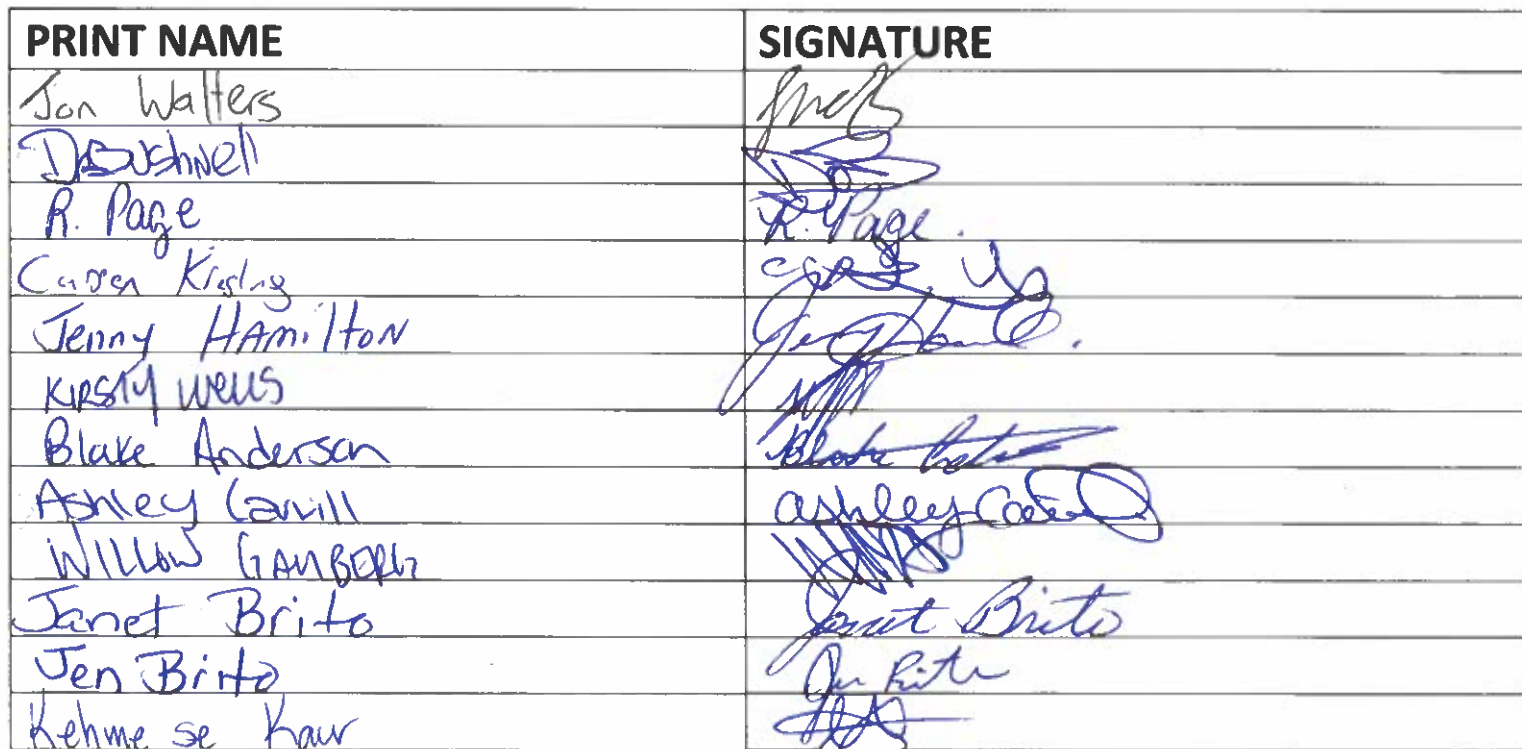 PRINT NAME SIGNATURE
Jon Walters
DBushnell
R. Page R. Page.
Kiesling
Jenny HAmilton
KIRSTY WELLS
Blake Anderson Blake
Ashley Carvill ashley
WILLOW GAMBERG
Janet Brito Janet Brito
Jen Brito Jen Brito
Kehme se Kaur